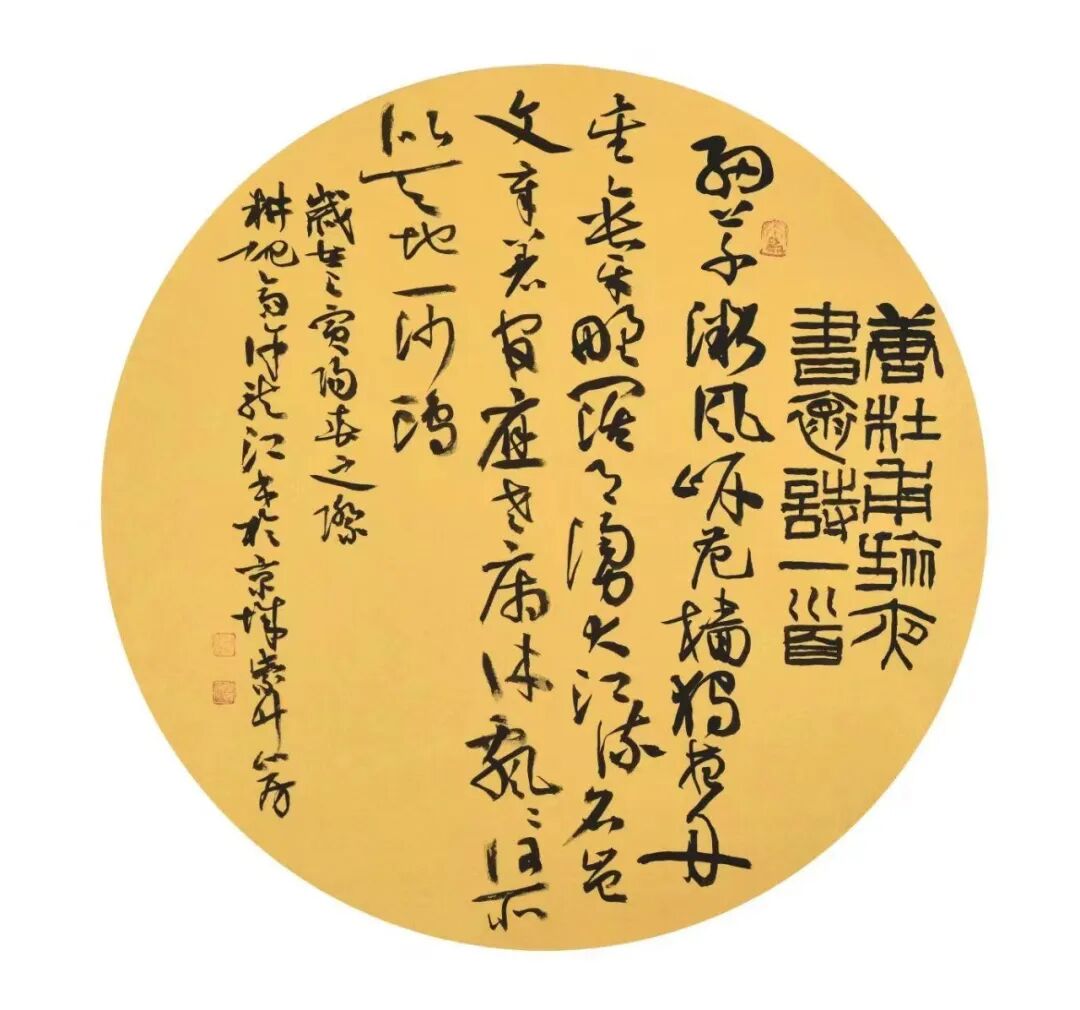 唐杜甫旅夜
書懷詩一首
細草微風岸危檣獨夜舟
星垂平野闊月湧大江流名豈
文章著官應老病休飄〻何所
似天地一沙鷗
歲在壬寅陽春之際
龍江書於京城山房